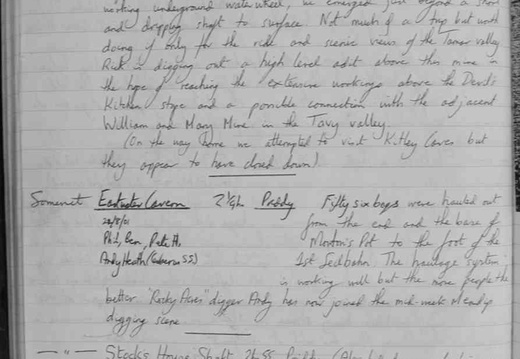 working underground water wheel, we emerged just beyond a short
and dropping shaft to surface. Not much of a trip but worth
doing if only for the ride and scenic views of the Tamar valley
Rick is digging out a high level adit above this mine in
the hope of reaching the extensive workings above the Devil's
Kitchen stope and a possible connection with the adjacent
William and Mary Mine in the Tavy valley.
(On the way home we attempted to visit Kitley Caves but
they appear to have closed down!)
Somerset Eastwater Cavern 2¼h Priddy Fifty six bags were hauled out
22/8/01 from the end and the base of
Phil, Ben, Pete H. Morton's Pot to the foot of the
Andy Heath (Cerberus S.S.) 1st Sedbahn. The haulage system
is working well but the more people the
better "Rocky Acres" digger Andy has now joined the mid-week Mendip
digging scene
— " — Stocks House Shaft 2h Priddy